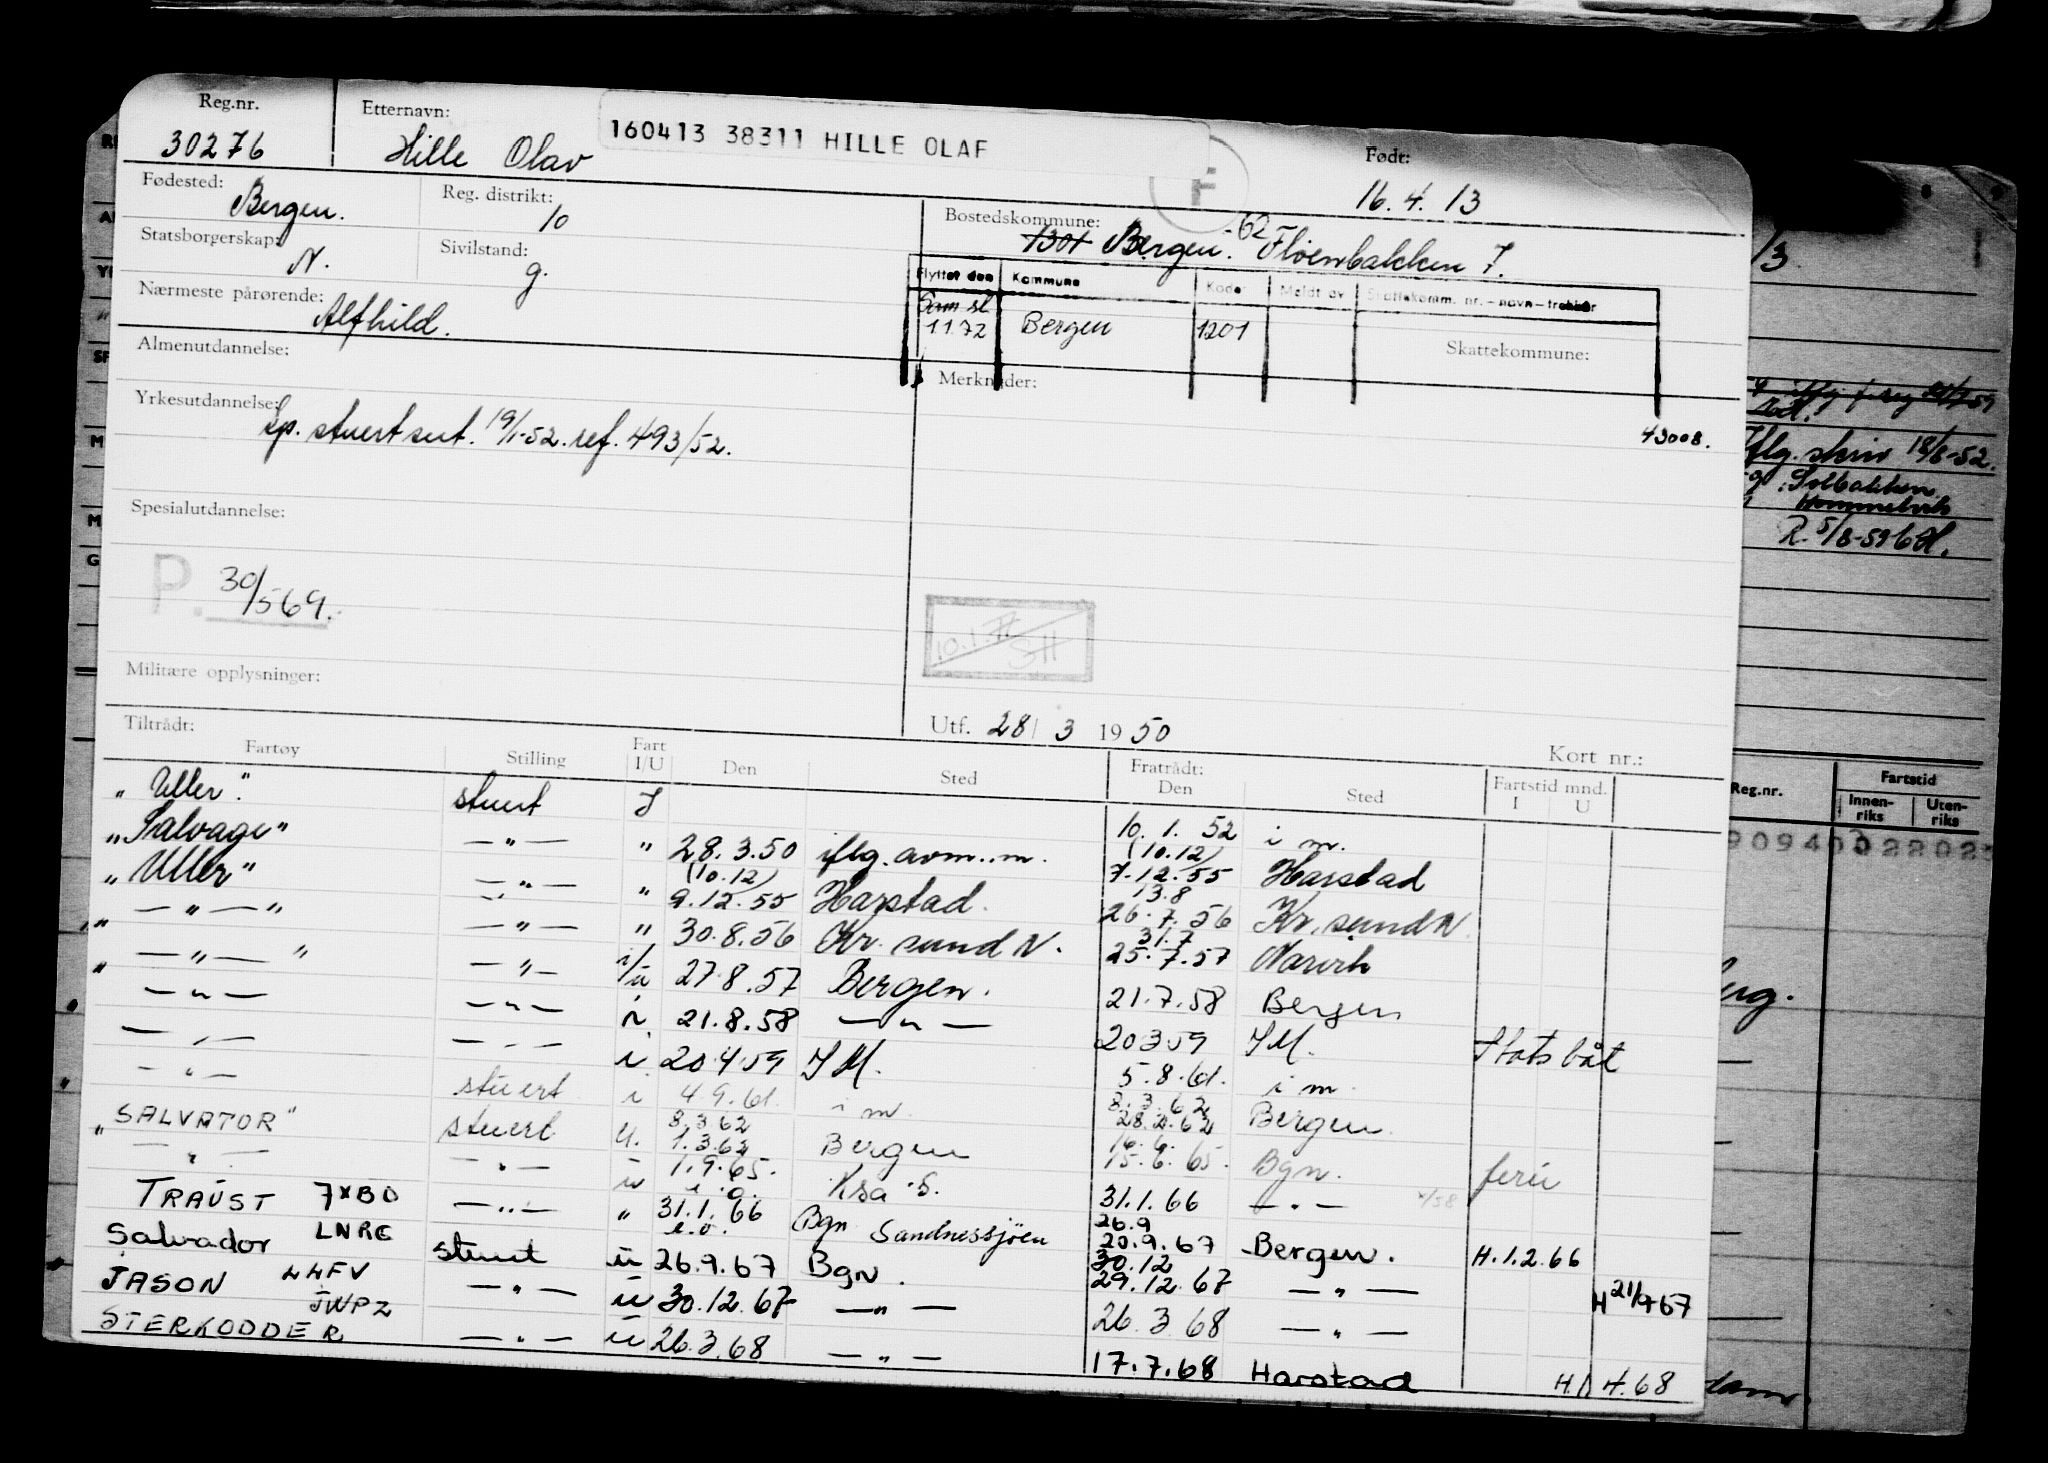 Reg.nr. Etternavn: 160413 38311 HILLE OLAF Født:
30276 Hille Olav F 16.4.13
Fødested: Bergen. Reg. distrikt: 10 Bostedskommune: 1301 Bergen. -62 Fløenbakken 7.
Statsborgerskap: N. Sivilstand: g.
Flyttet den Kommune Kode Meldt av Skattekomm. nr.-navn-trekkår
Sam sl
11.72 Bergen 1201
Nærmeste pårørende: Alfhild.
Skattekommune:
Almenutdannelse: Merknader:
43008.
Yrkesutdannelse: Sp. stuert sert. 19/1-52. ref. 493/52.
Spesialutdannelse:
P. 30/569.
10.1.77 SH
Militære opplysninger:
Utf. 28/ 3 1950
Tiltrådt: Kort nr.:
Fartøy Stilling Fart I/U Den Sted Fratrådt: Den Sted Fartstid mnd. I U
"Uller". stuert I 10. 1. 52 i m.
"Salvage" — " — " 28.3.50 iflg. avm. m. (10.12) 7.12.55 Harstad
"Uller" — " — " (10.12) 9.12.55 Harstad. 13.8 26.7.56 Kr. sund N.
" — " — " — " — " 30.8.56 Kr. sund N. 31.7 25.7.57 Narvik
— " — " — " — i/u 27.8.57 Bergen. 21.7.58 Bergen
" — " — — " — i. 21.8.58 — " — 20.3.59 I M. Statsbåt
— " — — " — i 20.4.59 I M. 5.8.61. i m.
— " — stuert i 4.9.61. i m. 8.3.62 28.2.62 Bergen
"SALVATOR" stuert u. 8.3.62 1.3.62 Bergen 16.6. 15.6.65. Bgn. ferie
— " — — " — u 1.9.65. Ksa S. 31.1.66 — " —
TRAUST 7XBO — " — " 31.1.66 Bgn Sandnessjøen 26.9 20.9.67 Bergen. H.1.2.66
Salvador LNRG stuert u 26.9.67 Bgn. 30.12 29.12.67 — " — H 21/9 67
JASON LLFV — " — u 30.12.67 — " — 26.3.68 — " —
STERKODDER JWPZ — " — u 26.3.68 — " — 17.7.68 Harstad H. 4.68
/3.
Iflg. skriv 18/8-52.
Solbakken
Hommelvik
R. 5/8-59
Reg.nr. Fartstid
Innen-riks Uten-riks